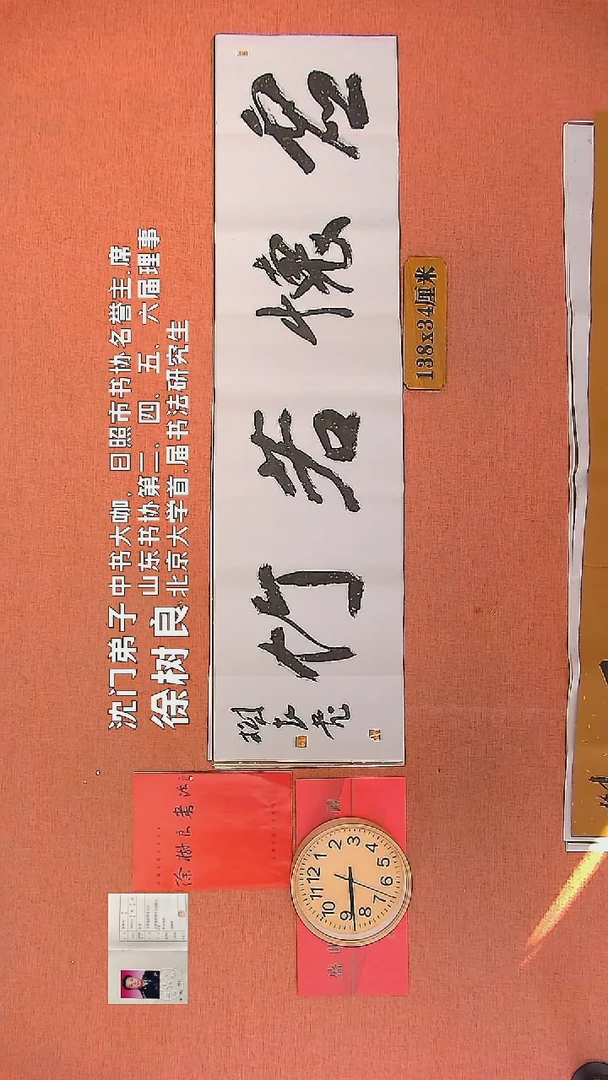 沈门弟子 中书大咖，日照市书协名誉主席
山东书协第三、四、五、六届理事
徐树良 北京大学首届书法研究生
虚懷若竹
樹良
138x34厘米
徐樹良書法
12
1
2
3
4
5
6
7
8
9
10
11